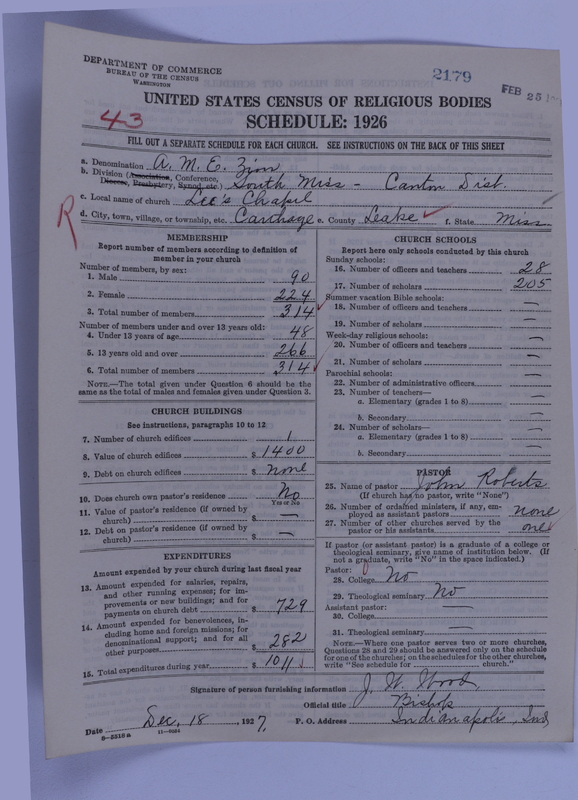 DEPARTMENT OF COMMERCE
BUREAU OF THE CENSUS
WASHINGTON
2179
FEB 25
UNITED STATES CENSUS OF RELIGIOUS BODIES
43
SCHEDULE: 1926
FILL OUT A SEPARATE SCHEDULE FOR EACH CHURCH. SEE INSTRUCTIONS ON THE BACK OF THIS SHEET
a. Denomination A. M. E. Zion
b. Division (Association, Conference, Diocese, Presbytery, Synod, etc.) South Miss - Canton Dist.
c. Local name of church Lee's Chapil
R
d. City, town, village, or township, etc. Carthage e. County Leake f. State Miss
MEMBERSHIP
Report number of members according to definition of
member in your church
Number of members, by sex:
1. Male 90
2. Female 224
3. Total number of members 314
Number of members under and over 13 years old:
4. Under 13 years of age 48
5. 13 years old and over 266
6. Total number of members 314
NOTE.—The total given under Question 6 should be the
same as the total of males and females given under Question 3.
CHURCH BUILDINGS
See instructions, paragraphs 10 to 12
7. Number of church edifices 1
8. Value of church edifices $ 1400
9. Debt on church edifices $ none
10. Does church own pastor's residence No
Yes or No
11. Value of pastor's residence (if owned by
church) $ —
12. Debt on pastor's residence (if owned by
church) $ —
EXPENDITURES
Amount expended by your church during last fiscal year
13. Amount expended for salaries, repairs,
and other running expenses; for im-
provements or new buildings; and for
payments on church debt $ 729
14. Amount expended for benevolences, in-
cluding home and foreign missions; for
denominational support; and for all
other purposes $ 282
15. Total expenditures during year $ 1011
CHURCH SCHOOLS
Report here only schools conducted by this church
Sunday schools:
16. Number of officers and teachers 28
17. Number of scholars 205
Summer vacation Bible schools:
18. Number of officers and teachers —
19. Number of scholars —
Week-day religious schools:
20. Number of officers and teachers —
21. Number of scholars —
Parochial schools:
22. Number of administrative officers —
23. Number of teachers—
a. Elementary (grades 1 to 8) —
b. Secondary —
24. Number of scholars—
a. Elementary (grades 1 to 8) —
b. Secondary —
PASTOR
25. Name of pastor John Roberts
(If church has no pastor, write "None")
26. Number of ordained ministers, if any, em-
ployed as assistant pastors none
27. Number of other churches served by the
pastor or his assistants one
If pastor (or assistant pastor) is a graduate of a college or
theological seminary, give name of institution below. (If
not a graduate, write "No" in the space indicated.)
Pastor:
28. College No
29. Theological seminary No
Assistant pastor:
30. College —
31. Theological seminary —
NOTE.—Where one pastor serves two or more churches,
Questions 28 and 29 should be answered only on the schedule
for one of the churches; on the schedules for the other churches,
write "See schedule for church."
Signature of person furnishing information J. W. Wood
Official title Bishop
Date Dec, 18, 1927, P. O. Address Indianapolis, Ind
8-2518a 11-9054